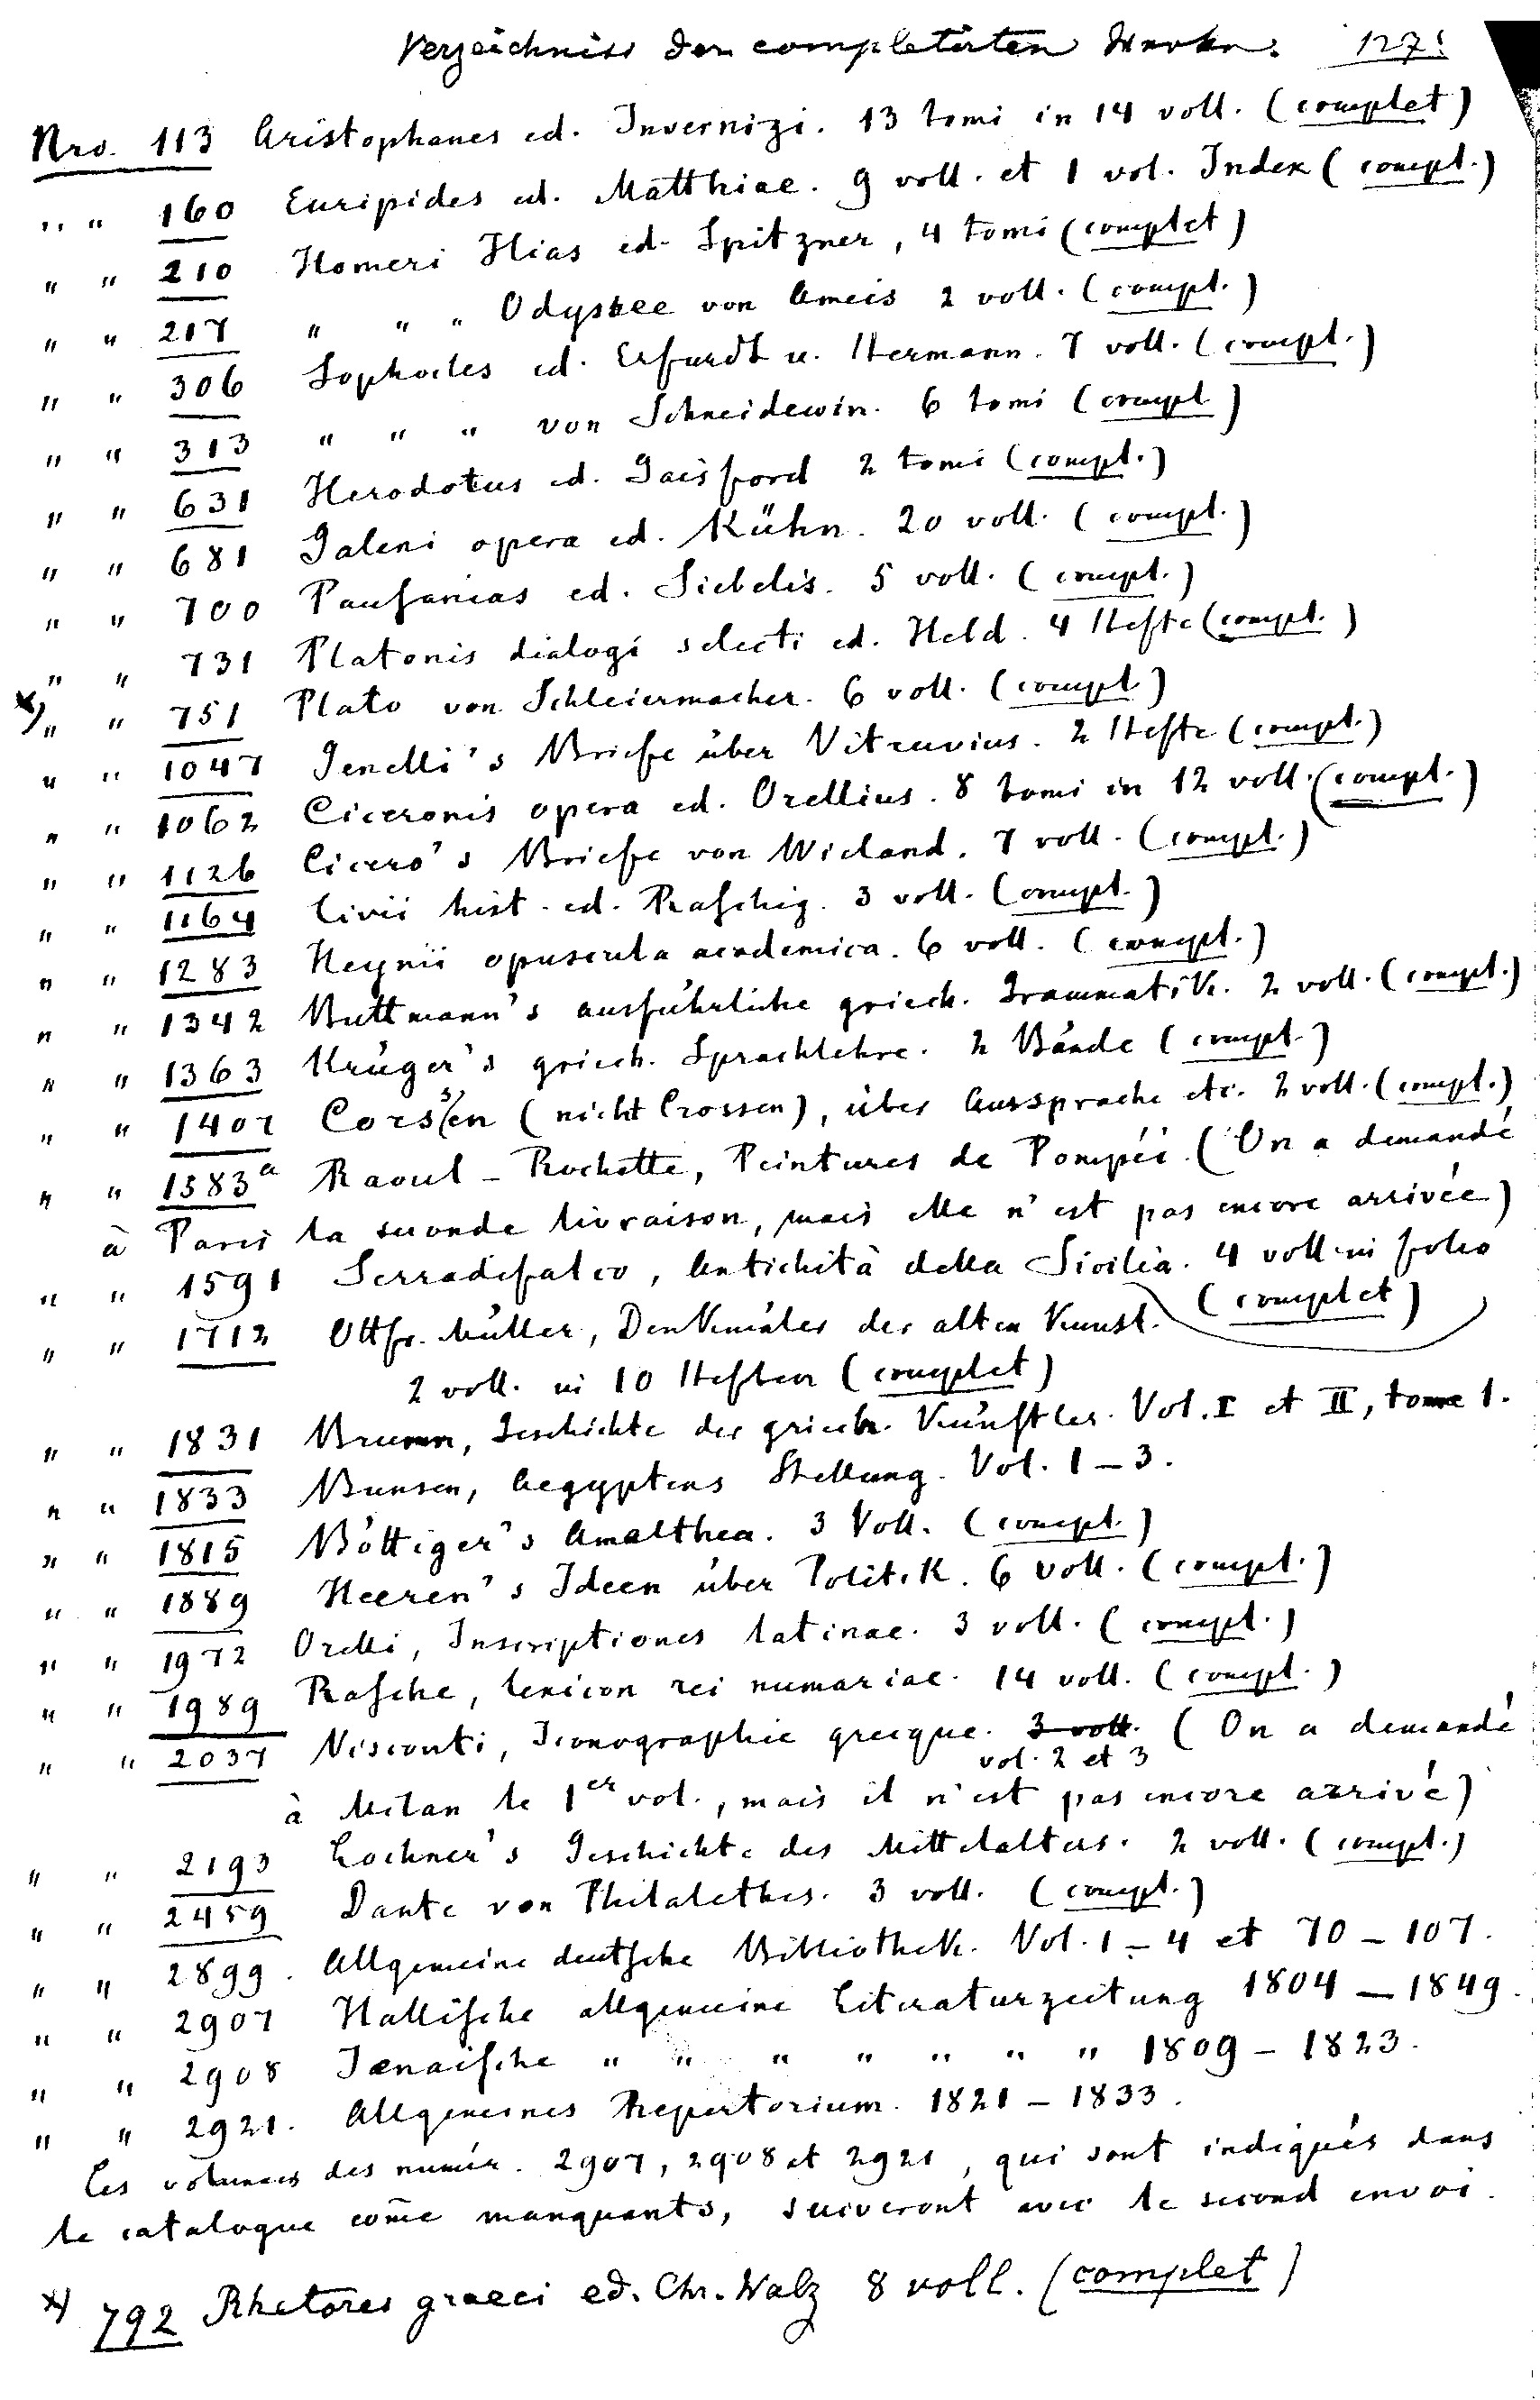 Verzeichniss der completirten Werke. 127.
Nro. 113 Aristophanes ed. Invernizi. 13 tomi in 14 voll. (complet)
" " 160 Euripides ed. Matthiae. 9 voll. et 1 vol. Index (compl.)
" " 210 Homeri Ilias ed. Spitzner, 4 tomi (complet)
" " 217 " " " Odyssee von Ameis 2 voll. (compl.)
" " 306 Sophocles ed. Erfurdt u. Hermann. 7 voll. (compl.)
" " 313 " " " von Schneidewin. 6 tomi (compl)
" " 631 Herodotus ed. Gaisford 2 tomi (compl.)
" " 681 Galeni opera ed. Kühn. 20 voll. (compl.)
" " 700 Pausanias ed. Siebelis. 5 voll. (compl.)
" " 731 Platonis dialogi selecti ed. Held. 4 Hefte (compl.)
*) " " 751 Plato von Schleiermacher. 6 voll. (compl)
" " 1047 Genelli's Briefe über Vitruvius. 2 Hefte (compl.)
" " 1062 Ciceronis opera ed. Orellius. 8 tomi in 12 voll. (compl.)
" " 1126 Cicero's Briefe von Wieland. 7 voll. (compl.)
" " 1164 Livii hist. ed. Raschig. 3 voll. (compl.)
" " 1283 Heynii opuscula academica. 6 voll. (compl.)
" " 1342 Buttmann's ausführliche griech. Grammatik. 2 voll. (compl.)
" " 1363 Krüger's griech. Sprachlehre. 2 Bände (compl.)
" " 1407 Corssen (nicht Crossen), über Aussprache etc. 2 voll. (compl.)
" " 1583a Raoul-Rochette, Peintures de Pompéi. (On a demandé
à Paris la seconde livraison, mais elle n'est pas encore arrivée)
" " 1591 Serradifalco, Antichità della Sicilia. 4 voll. in folio
(complet)
" " 1712 Ottfr. Müller, Denkmäler der alten Kunst.
2 voll. in 10 Heften (complet)
" " 1831 Brunn, Geschichte der griech. Künstler. Vol. I et II, tome 1.
" " 1833 Bunsen, Aegyptens Stellung. Vol. 1-3.
" " 1815 Böttiger's Amalthea. 3 Voll. (compl.)
" " 1889 Heeren's Ideen über Politik. 6 voll. (compl.)
" " 1972 Orelli, Inscriptiones latinae. 3 voll. (compl.)
" " 1989 Rasche, lexicon rei numariae. 14 voll. (compl.)
" " 2037 Visconti, Iconographie grecque. 3 voll. (On a demandé
vol. 2 et 3
à Milan le 1er vol., mais il n'est pas encore arrivé)
" " 2193 Lochner's Geschichte des Mittelalters. 2 voll. (compl.)
" " 2459 Dante von Philalethes. 3 voll. (compl.)
" " 2899. Allgemeine deutsche Bibliothek. Vol. 1-4 et 70-107.
" " 2907 Hallische allgemeine Literaturzeitung 1804-1849.
" " 2908 Jenaische " " " " " " " 1809-1823.
" " 2921. Allgemeines Repertorium. 1821-1833.
Les volumes des numér. 2907, 2908 et 2921, qui sont indiqués dans
le catalogue com̄e manquants, suiveront avec le second envoi.
*) 792 Rhetores graeci ed. Chr. Walz 8 voll. (complet)